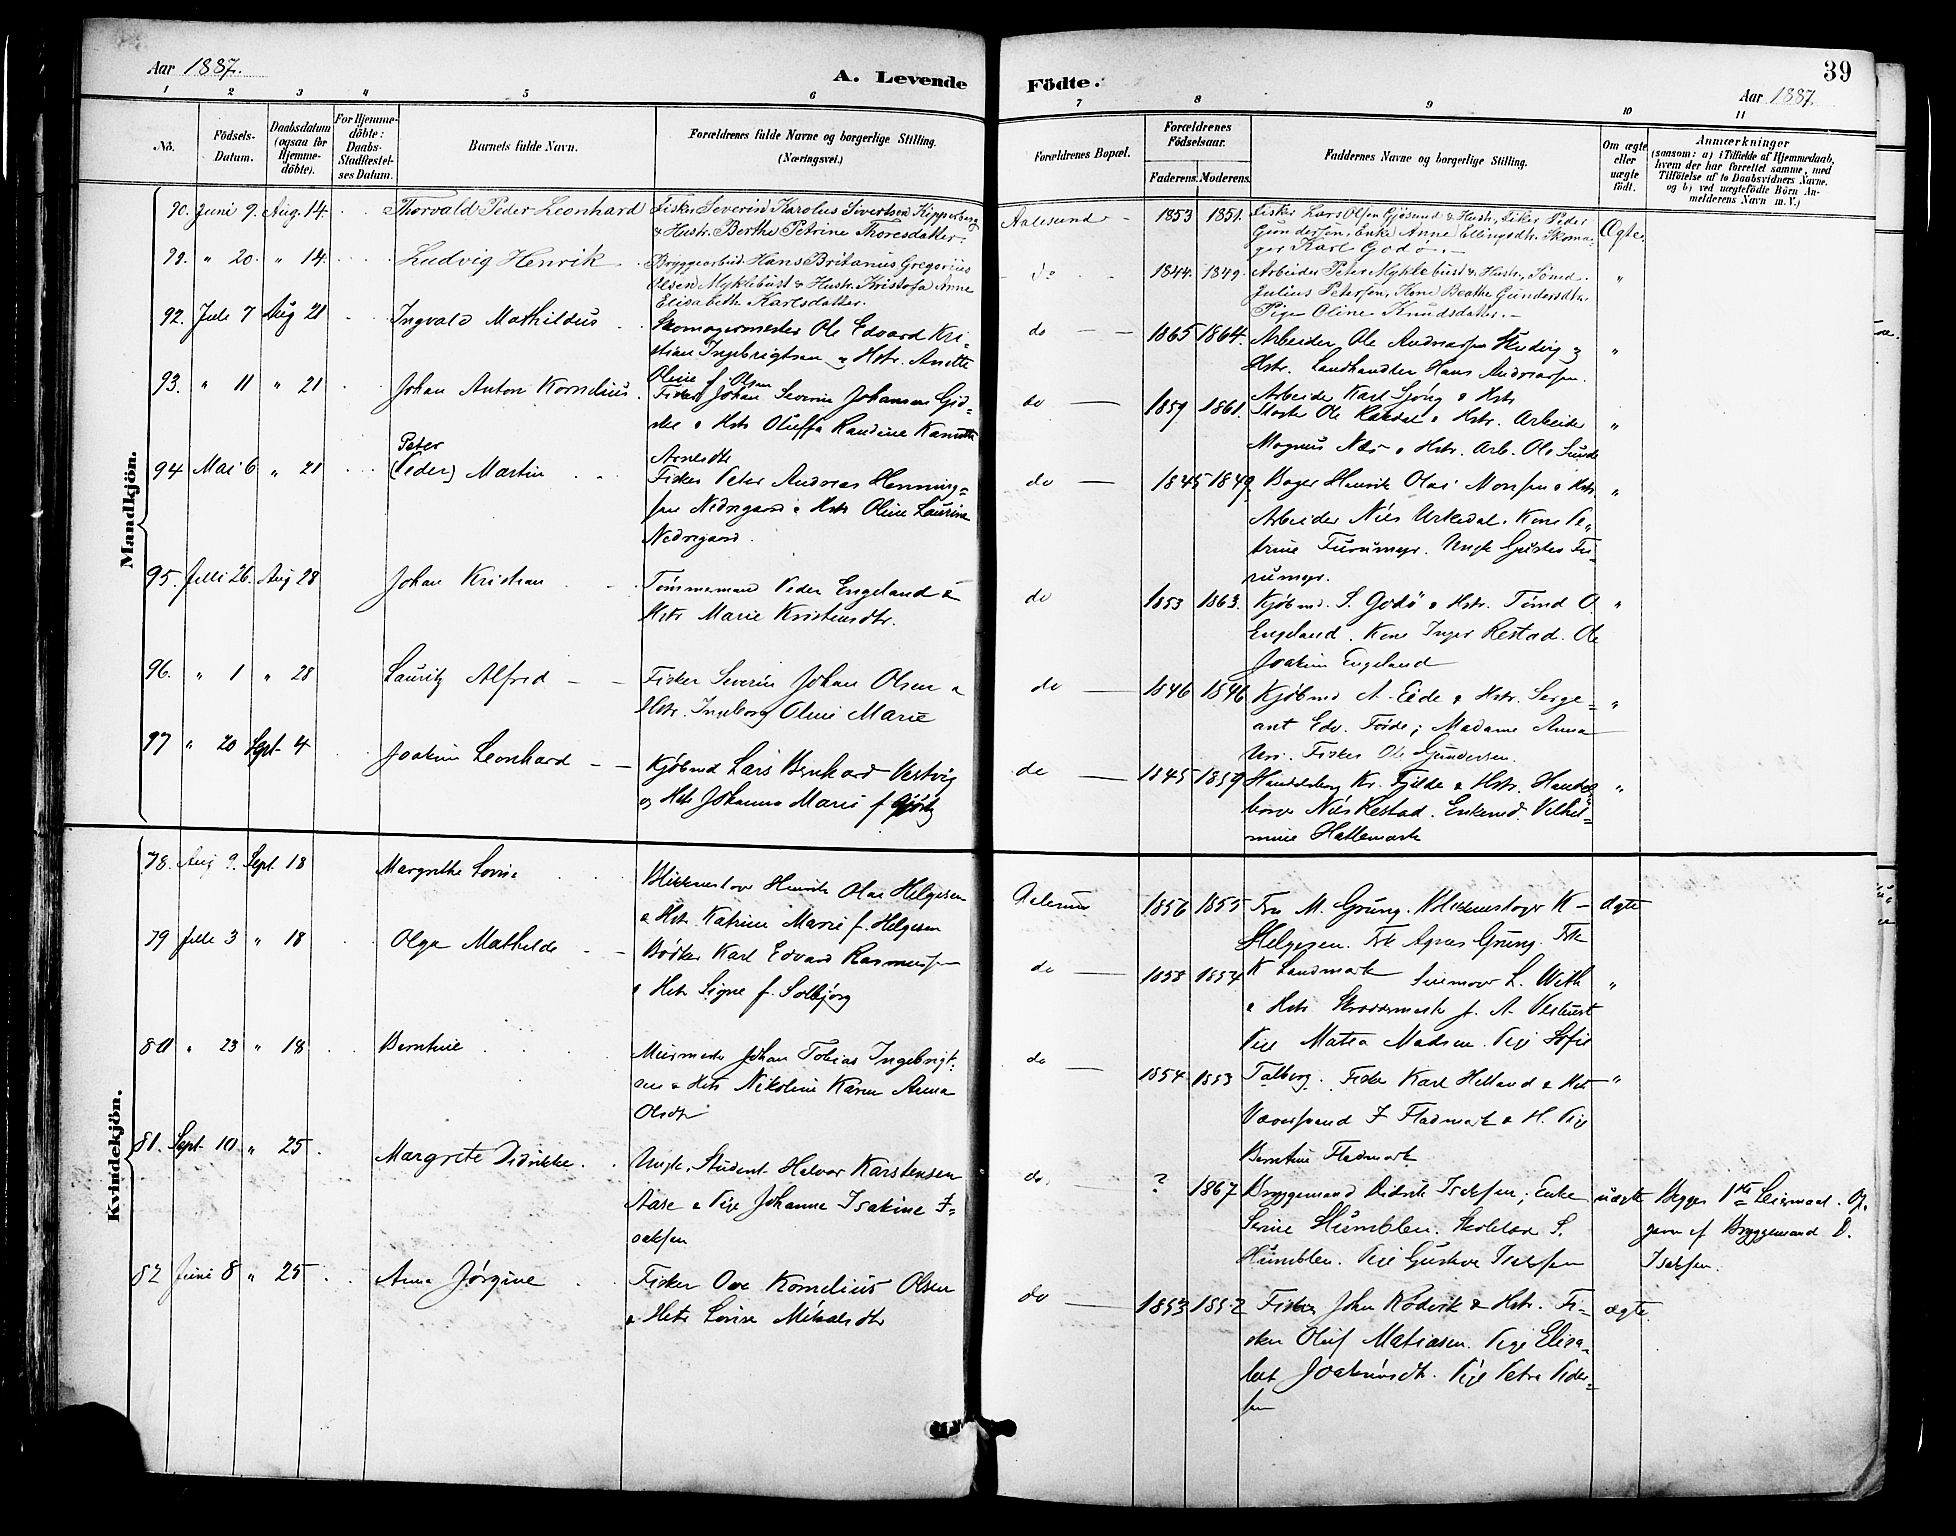 Aar 1887.
A. Levende
Födte.
39
Aar 1887.
1 2 3 4 5 6 7 8 9 10 11
No.
Födsels-Datum.
Daabsdatum (ogsaa for Hjemme-döbte).
For Hjemme-döbte: Daabs-Stadfæstel-ses Datum.
Barnets fulde Navn.
Forældrenes fulde Navne og borgerlige Stilling.
(Næringsvei.)
Forældrenes Bopæl.
Forældrenes Födselsaar.
Faderens. Moderens.
Faddernes Navne og borgerlige Stilling.
Om ægte eller uægte födt.
Anmærkninger
(saasom: a) i Tilfælde af Hjemmedaab, hvem der har forrettet samme, med Tilföielse af to Daabsvidners Navne, og b) ved uægtefödte Börn An-melderens Navn m. V.)
Mandkjön.
90. Juni 9. Aug. 14 Thorvald Peder Leonhard
Fisker Severin Karolus Sivertsen Kipperberg
& Hustr. Berthe Petrine Thoresdatter.
Aalesund 1853 1851.
Fisker Lars Olsen Gjøsund & Hustr, Fisker Peder
Gundersen, Enke Anne Ellingsdtr. Skoma-
ger Karl Godø.
Ægte
91. " 20. " 14. Ludvig Henrik
Bryggearbeid. Hans Britanius Gregorius
Olsen Myklebust & Hustr. Kristofa Anne
Elisabeth Karlsdatter.
do 1844. 1849.
Arbeider Peter Myklebust & Hustr, Tømd.
Julius Petersen, Kone Beathe Gundersdtr.
Pige Oline Knudsdatter.
"
92. Juli 7 Aug 21 Ingvald Mathildus
Skomagermester Ole Edvard Kri-
stian Ingebrigtsen og Hstr. Anette
Oline f. Olsen
do 1865 1864.
Arbeider Ole Andreassen og
Hstr. Landhandler Hans Andreassen.
Arbeider Karl & Hstr
"
93. " 11 " 21 Johan Anton Kornelius.
Fisker Johan Severin Johansen Gid-
ske & Hstr Oluffa Randine
Arnesdtr
do 1859 1861.
Ole & Hstr. Arbeider
Magnus & Hstr. Arb. Ole Sunde
"
94 Mai 6 " 21 Peter
(Peder) Martin
Fisker Peter Andreas Henning-
sen Nedregaard & Hstr Oline Laurine
Nedregaard.
do 1845 1849.
Bager Henrik Olai Monsen & Hstr
Arbeider Nils Urkedal. Kone Pe-
trine Furumyr. Ungk Gustav Fu-
rumyr.
"
95. Juli 26. Aug 28 Johan Kristian
Tømmermand Peder Engeland &
Hstr Marie Kristensdtr.
do 1853 1863.
Kjøbmd. S. Godø & Hstr. Tømd O.
Engeland. Kone Inger Restad. Ole
Joakim Engeland
"
96. " 1 " 28 Lauritz Alfred
Fisker Severin Johan Olsen &
Hstr. Ingeborg Oline Marie
do 1846 1846
Kjøbmd A. Eide & Hstr. Serge-
ant Edv. Førde; Madame Anna
Fisker Ole Gundersen.
"
97 " 20 Sept. 4 Joakim Leonhard
Kjøbmd Lars Bernhard Vestvig
og Hstr Johanna Marie f.
do 1845 1859
Handelsborg Kr. Fjelde & Hstr. Handels
borger Nils Restad. Enkemd. Vilhel-
mine Hattemark
"
Kvindekjön.
78. Aug 9. Sept 18 Margrethe Lovise
Blikkenslager Henrik Olai Helgesen
& Hstr Katrine Marie f. Helgesen
Aalesund 1856 1855
Fru M. Grung. Blikkenslager K
Helgesen. Frk Agnes Grung. Frk
K Landmark
ægte
79 Juli 3 " 18 Olga Mathilde
Bødker Karl Edvard Rasmussen
& Hstr Signe f. Solbjørg
do 1858 1854
L. With
& Hstr
Pige Matea Madsen. Pige Sofie
Talberg.
"
80 " 23 " 18 Berntine
Murmester Johan Tobias Ingebrigt-
sen & Hstr Nikoline Karen Anna
Olsdtr
do 1854 1853
Fisker Karl Helland & Hstr
Flademark & H. Pige
Berntine Flademark
"
81. Sept. 10 " 25 Margrete Didrikke
Ungk. Student Halvor Karstensen
Aase & Pige Johanne Isakine I-
saksen
do. ? 1867
Bryggemand Didrik Isaksen; Enke
Serine Humblen. Skolelær S.
Humblen. Pige Gustava Isaksen
uægte
Begges 1ste Leiermaal. Op-
given af Bryggemand D.
Isaksen.
82 Juni 8 " 25 Anna Jørgine
Fisker Ove Kornelius Olsen
& Hstr Lovise Mikalsdtr
do 1853 1852
Fisker Johan Rødvik & Hstr. Fi-
sker Oluf Matiasen. Pige Elisa-
bet Joakimsdtr. Pige Petra Peder-
sen
ægte.